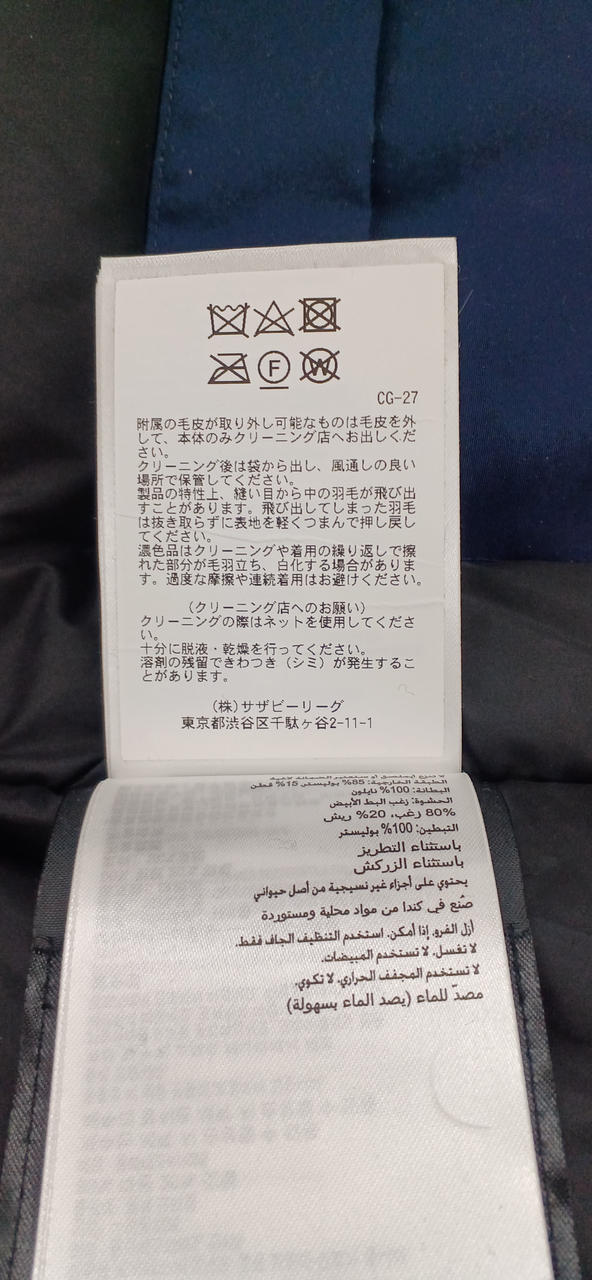 F
W
CG-27
附属の毛皮が取り外し可能なものは毛皮を外
して、本体のみクリーニング店へお出しくだ
さい。
クリーニング後は袋から出し、風通しの良い
場所で保管してください。
製品の特性上、縫い目から中の羽毛が飛び出
すことがあります。飛び出してしまった羽毛
は抜き取らずに表地を軽くつまんで押し戻し
てください。
濃色品はクリーニングや着用の繰り返しで擦
れた部分が毛羽立ち、白化する場合がありま
す。過度な摩擦や連続着用はお避けください。
(クリーニング店へのお願い)
クリーニングの際はネットを使用してくださ
い。
十分に脱液・乾燥を行ってください。
溶剤の残留できわつき（シミ）が発生するこ
とがあります。
(株)サザビーリーグ
東京都渋谷区千駄ヶ谷2-11-1
الطبقة الخارجية: 85% بوليستر 15% قطن
البطانة: 100% نايلون
الحشوة: زغب البط الأبيض
80% زغب، 20% ريش
التبطين: 100% بوليستر
باستثناء التطريز
باستثناء الزركش
يحتوي على أجزاء غير نسيجية من أصل حيواني
صُنع في كندا من مواد محلية ومستوردة
أزل الفرو، إذا أمكن. استخدم التنظيف الجاف فقط.
لا تغسل. لا تستخدم المبيضات.
لا تستخدم المجفف الحراري. لا تكوي.
مصدّ للماء (يصد الماء بسهولة)